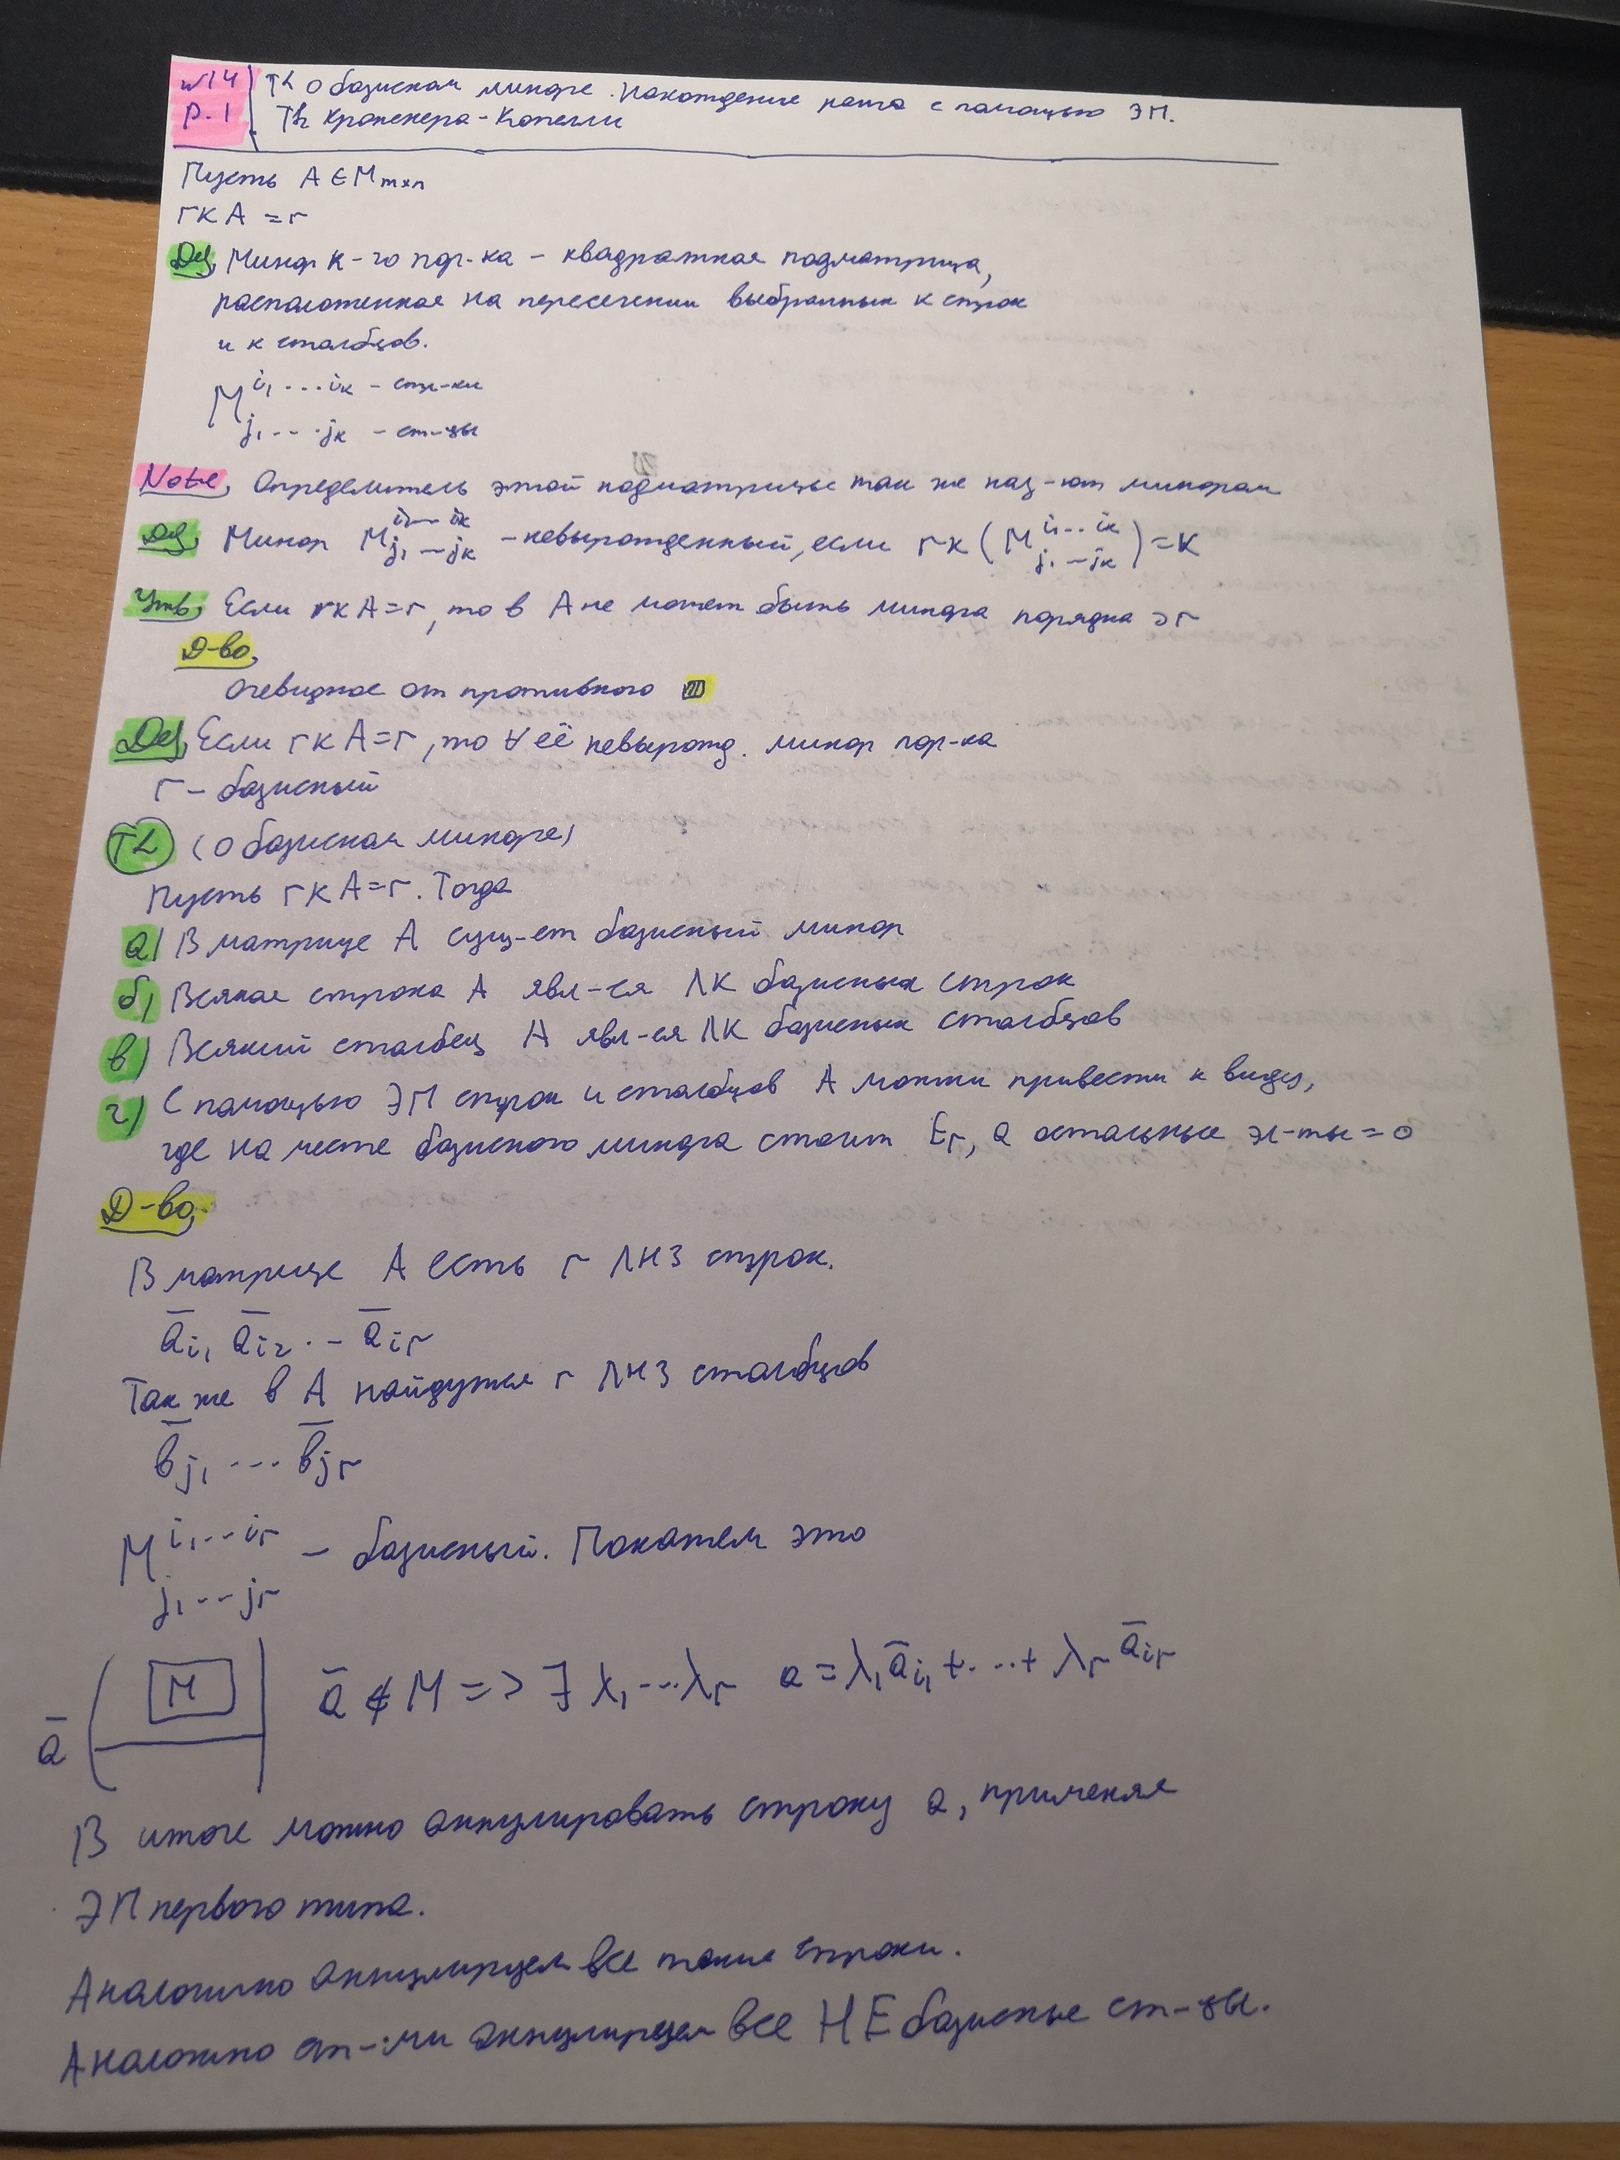 №14 Th О базисном миноре. Нахождение ранга с помощью ЭП.
p.1 Th Кронекера-Капелли
Пусть A ∈ M m×n
rk A = r
Def, Минор k-го пор-ка – квадратная подматрица,
расположенная на пересечении выбранных k строк
и k столбцов.
M i₁...iₖ – стр-ки
j₁...jₖ – ст-цы
Note, Определитель этой подматрицы так же наз-ют минором
Def, Минор M i₁...iₖ j₁...jₖ – невырожденный, если rk (M i₁...iₖ j₁...jₖ) = k
Утв, Если rk A = r, то в A не может быть минора порядка > r
Д-во,
Очевидное от противного
Def, Если rk A = r, то ∀ её невырожд. минор пор-ка
r – базисный
Th (О базисном миноре)
Пусть rk A = r. Тогда
а) В матрице A сущ-ет базисный минор
б) Всякая строка A явл-ся ЛК базисных строк
в) Всякий столбец A явл-ся ЛК базисных столбцов
г) С помощью ЭП строк и столбцов A можно привести к виду,
где на месте базисного минора стоит Er, а остальные эл-ты = 0
Д-во,
В матрице A есть r ЛНЗ строк.
a̅i₁ a̅i₂ ... a̅ir
Так же в A найдутся r ЛНЗ столбцов
b̅j₁ ... b̅jr
M i₁...ir j₁...jr – базисный. Покажем это
a̅ ( M | a̅ ∉ M => ∃ λ₁...λr a = λ₁a̅i₁ + ... + λr a̅ir
В итоге можно аннулировать строку a, применяя
ЭП первого типа.
Аналогично аннулируем все такие строки.
Аналогично ст-ми аннулируем все НЕ базисные ст-цы.